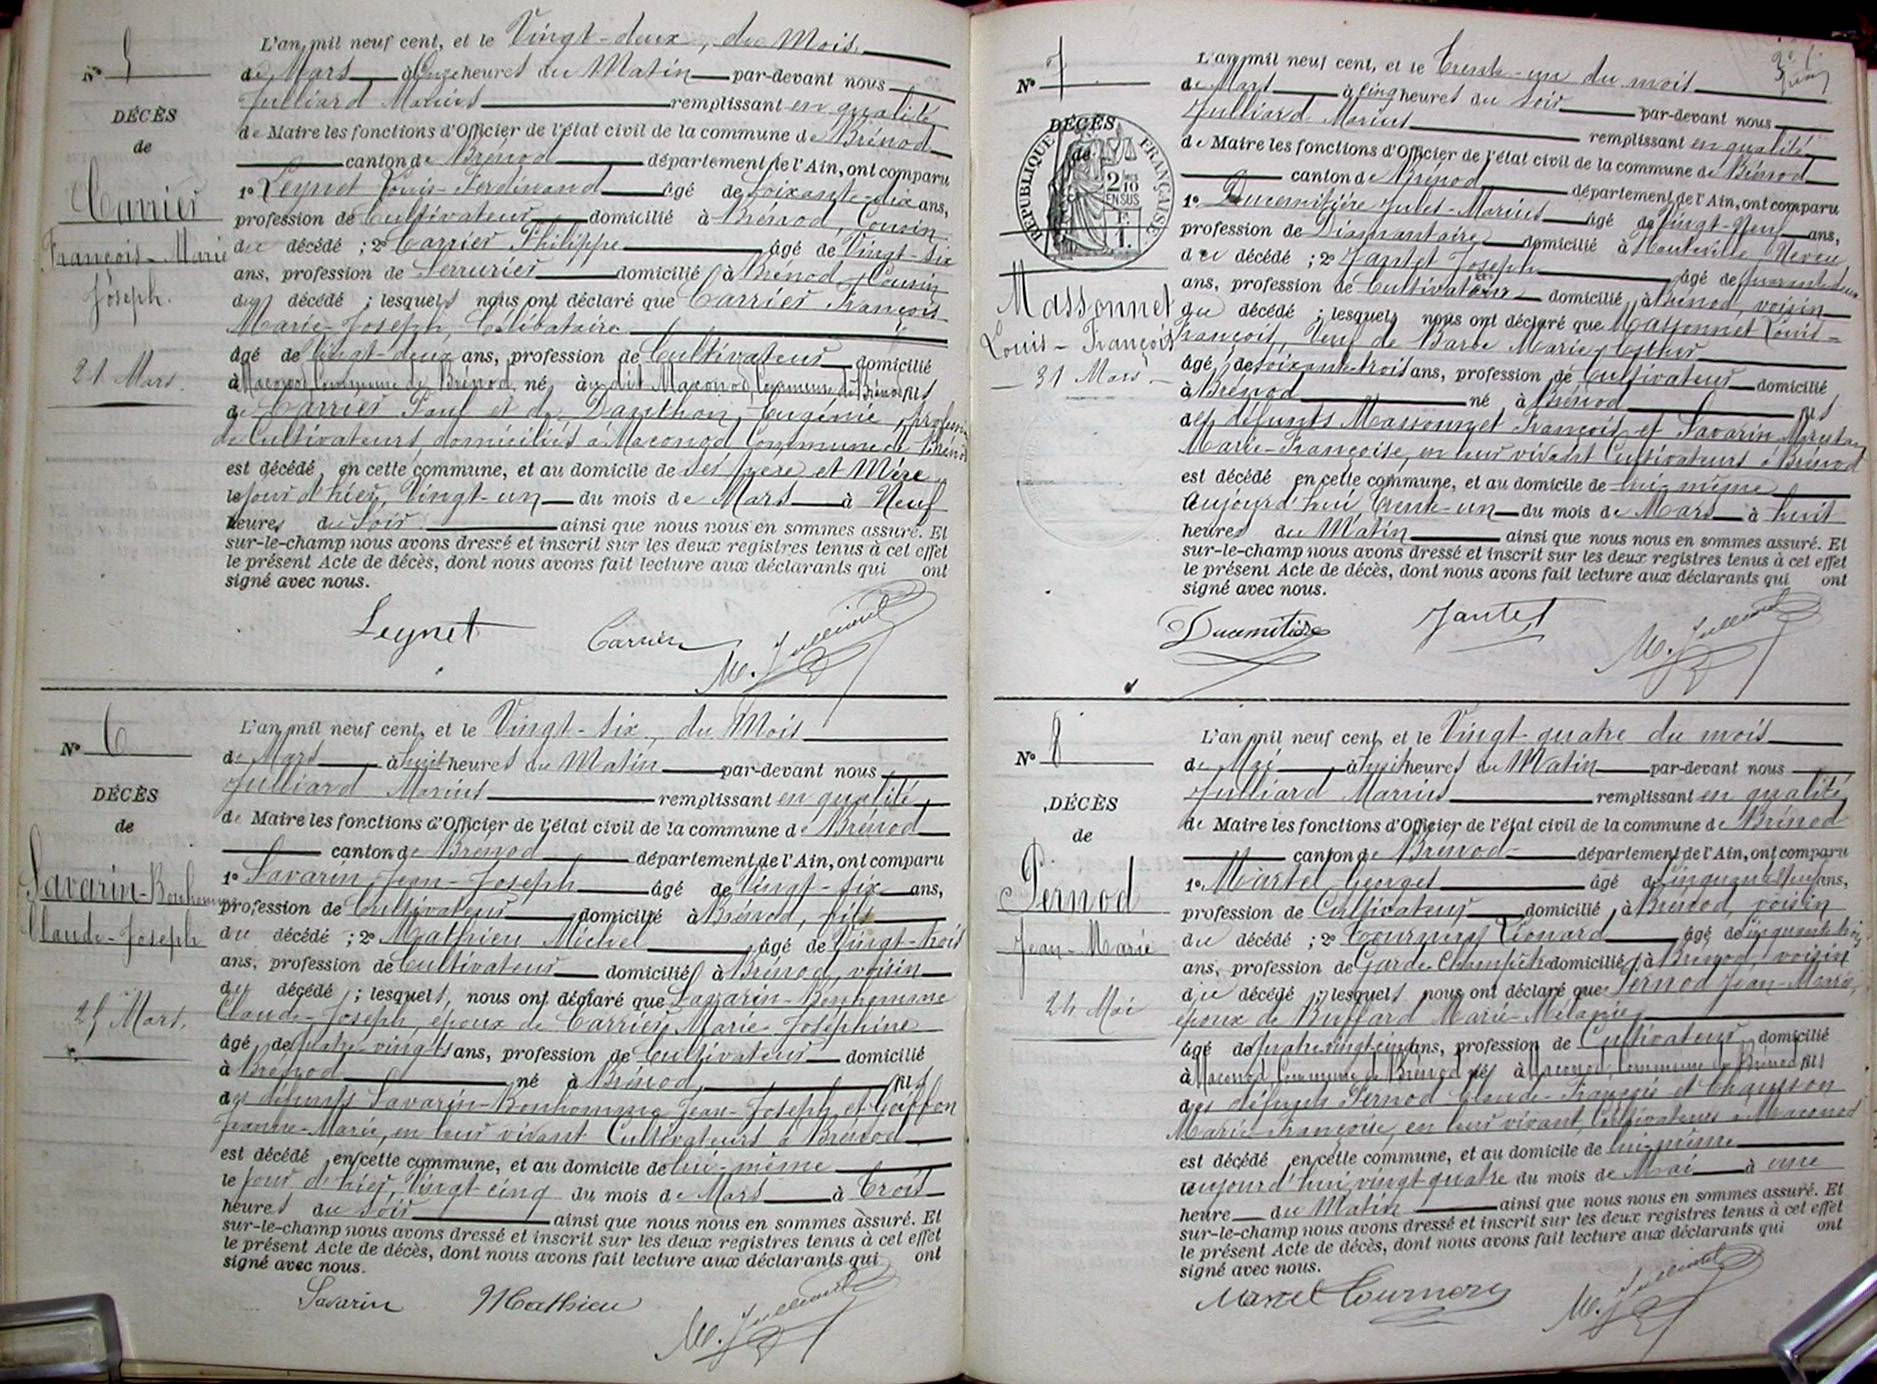 L'an mil neuf cent, et le Vingt-deux, du Mois
N° 5
de Mars à Onze heures du Matin par-devant nous
Julliard Marius remplissant en qualité
DÉCÈS
de Maire les fonctions d'Officier de l'état civil de la commune de Brénod
de
canton de Brénod département de l'Ain, ont comparu
Carrier
1° Leynet Louis-Ferdinand âgé de soixante-dix ans,
profession de Cultivateur domicilié à Brénod, Cousin
François-Marie
du décédé ; 2° Carrier Philippe âgé de Vingt-six
Joseph.
ans, profession de Serrurier domicilié à Brénod, Cousin
du décédé ; lesquels nous ont déclaré que Carrier François
Marie-Joseph, Célibataire
21 Mars.
âgé de Vingt-deux ans, profession de Cultivateur domicilié
à Maconod, Commune de Brénod, né au dit Maconod, Commune de Brénod fils
de Carrier Paul et de Danthon, Eugénie,
de Cultivateurs domiciliés à Maconod Commune de Brénod
est décédé en cette commune, et au domicile de ses père et Mère
le jour d'hier, Vingt-un du mois de Mars à Neuf
heures du Soir ainsi que nous nous en sommes assuré. Et
sur-le-champ nous avons dressé et inscrit sur les deux registres tenus à cet effet
le présent Acte de décès, dont nous avons fait lecture aux déclarants qui ont
signé avec nous.
Leynet Carrier M. Julliard
L'an mil neuf cent, et le Vingt-six, du Mois
N° 6
de Mars à huit heures du Matin par-devant nous
Julliard Marius remplissant en qualité
DÉCÈS
de Maire les fonctions d'Officier de l'état civil de la commune de Brénod
de
canton de Brénod département de l'Ain, ont comparu
Savarin-Bonhomme
1° Savarin Jean-Joseph âgé de Vingt-six ans,
profession de Cultivateur domicilié à Brénod, fils
Claude-Joseph
du décédé ; 2° Mathieu Michel âgé de Vingt-trois
ans, profession de Cultivateur domiciliés à Brénod, voisin
du décédé ; lesquels nous ont déclaré que Savarin-Bonhomme
25 Mars.
Claude-Joseph, époux de Carrier, Marie-Joséphine
âgé de quatre-vingts ans, profession de Cultivateur domicilié
à Brénod né à Brénod, fils
des défunts Savarin-Bonhomme Jean-Joseph et Goiffon
Jeanne-Marie, en leur vivant Cultivateurs à Brénod
est décédé en cette commune, et au domicile de lui-même
le jour d'hier, Vingt-cinq du mois de Mars à Trois
heures du Soir ainsi que nous nous en sommes assuré. Et
sur-le-champ nous avons dressé et inscrit sur les deux registres tenus à cet effet
le présent Acte de décès, dont nous avons fait lecture aux déclarants qui ont
signé avec nous.
Savarin Mathieu M. Julliard
L'an mil neuf cent, et le Trente-un du mois
N° 7
de Mars à cinq heures du Soir par-devant nous
Julliard Marius remplissant en qualité
DÉCÈS
de Maire les fonctions d'Officier de l'état civil de la commune de Brénod
de
RÉPUBLIQUE FRANÇAISE
2 10 EN SUS
1 F.
canton de Brénod département de l'Ain, ont comparu
1° Ducemitière Jules-Marius âgé de Vingt-Neuf ans,
profession de Diamantaire domicilié à Hauteville, Neveu
du décédé ; 2° Jantet Joseph âgé de quarante-deux
ans, profession de Cultivateur domicilié à Brénod, voisin
Massonnet
du décédé ; lesquels nous ont déclaré que Massonnet Louis-
Louis-François
François, Veuf de Barbe Marie-Esther
31 Mars
âgé de soixante-trois ans, profession de Cultivateur domicilié
à Brénod né à Brénod fils
des défunts Massonnet François et Savarin
Marie-Françoise, en leur vivant Cultivateurs à Brénod
est décédé en cette commune, et au domicile de lui-même
Aujourd'hui, Trente-un du mois de Mars à huit
heures du Matin ainsi que nous nous en sommes assuré. Et
sur-le-champ nous avons dressé et inscrit sur les deux registres tenus à cet effet
le présent Acte de décès, dont nous avons fait lecture aux déclarants qui ont
signé avec nous.
Ducemitière Jantet M. Julliard
L'an mil neuf cent, et le Vingt-quatre du mois
N° 8
de Mai à huit heures du Matin par-devant nous
Julliard Marius remplissant en qualité
DÉCÈS
de Maire les fonctions d'Officier de l'état civil de la commune de Brénod
de
canton de Brénod département de l'Ain, ont comparu
Pernod
1° Martel Georges âgé de ans,
profession de Cultivateur domicilié à Brénod, voisin
Jean-Marie
du décédé ; 2° Tournery Léonard âgé de cinquante-trois
ans, profession de Garde Champêtre domiciliés à Brénod, voisin
24 Mai
du décédé ; lesquels nous ont déclaré que Pernod Jean-Marie,
époux de Buffard Marie-Mélanie,
âgé de quatre-vingt-cinq ans, profession de Cultivateur domicilié
à Maconod, Commune de Brénod né à Maconod, Commune de Brénod fils
des défunts Pernod Claude-François et Chausson
Marie-Françoise, en leur vivant, Cultivateurs à Maconod
est décédé en cette commune, et au domicile de lui-même
aujourd'hui vingt quatre du mois de Mai à une
heure du Matin ainsi que nous nous en sommes assuré. Et
sur-le-champ nous avons dressé et inscrit sur les deux registres tenus à cet effet
le présent Acte de décès, dont nous avons fait lecture aux déclarants qui ont
signé avec nous.
Martel Tournery M. Julliard